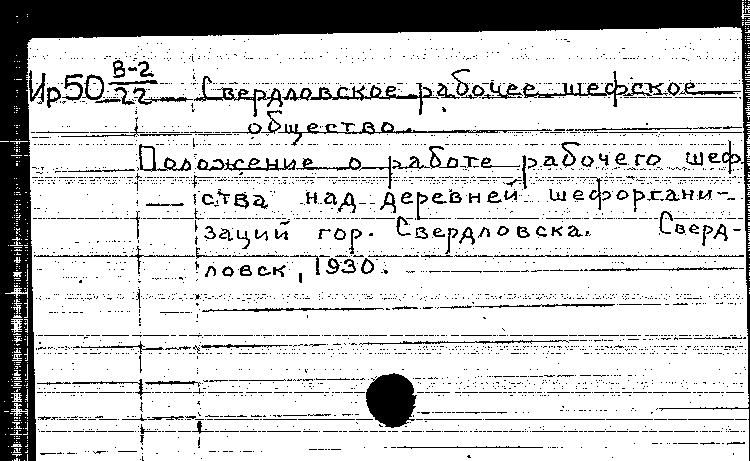 Ир50 В-2/22 Свердловское рабочее шефское
общество.
Положение о работе рабочего шеф
ства над деревней шефоргани-
заций гор. Свердловска. Сверд-
ловск, 1930.